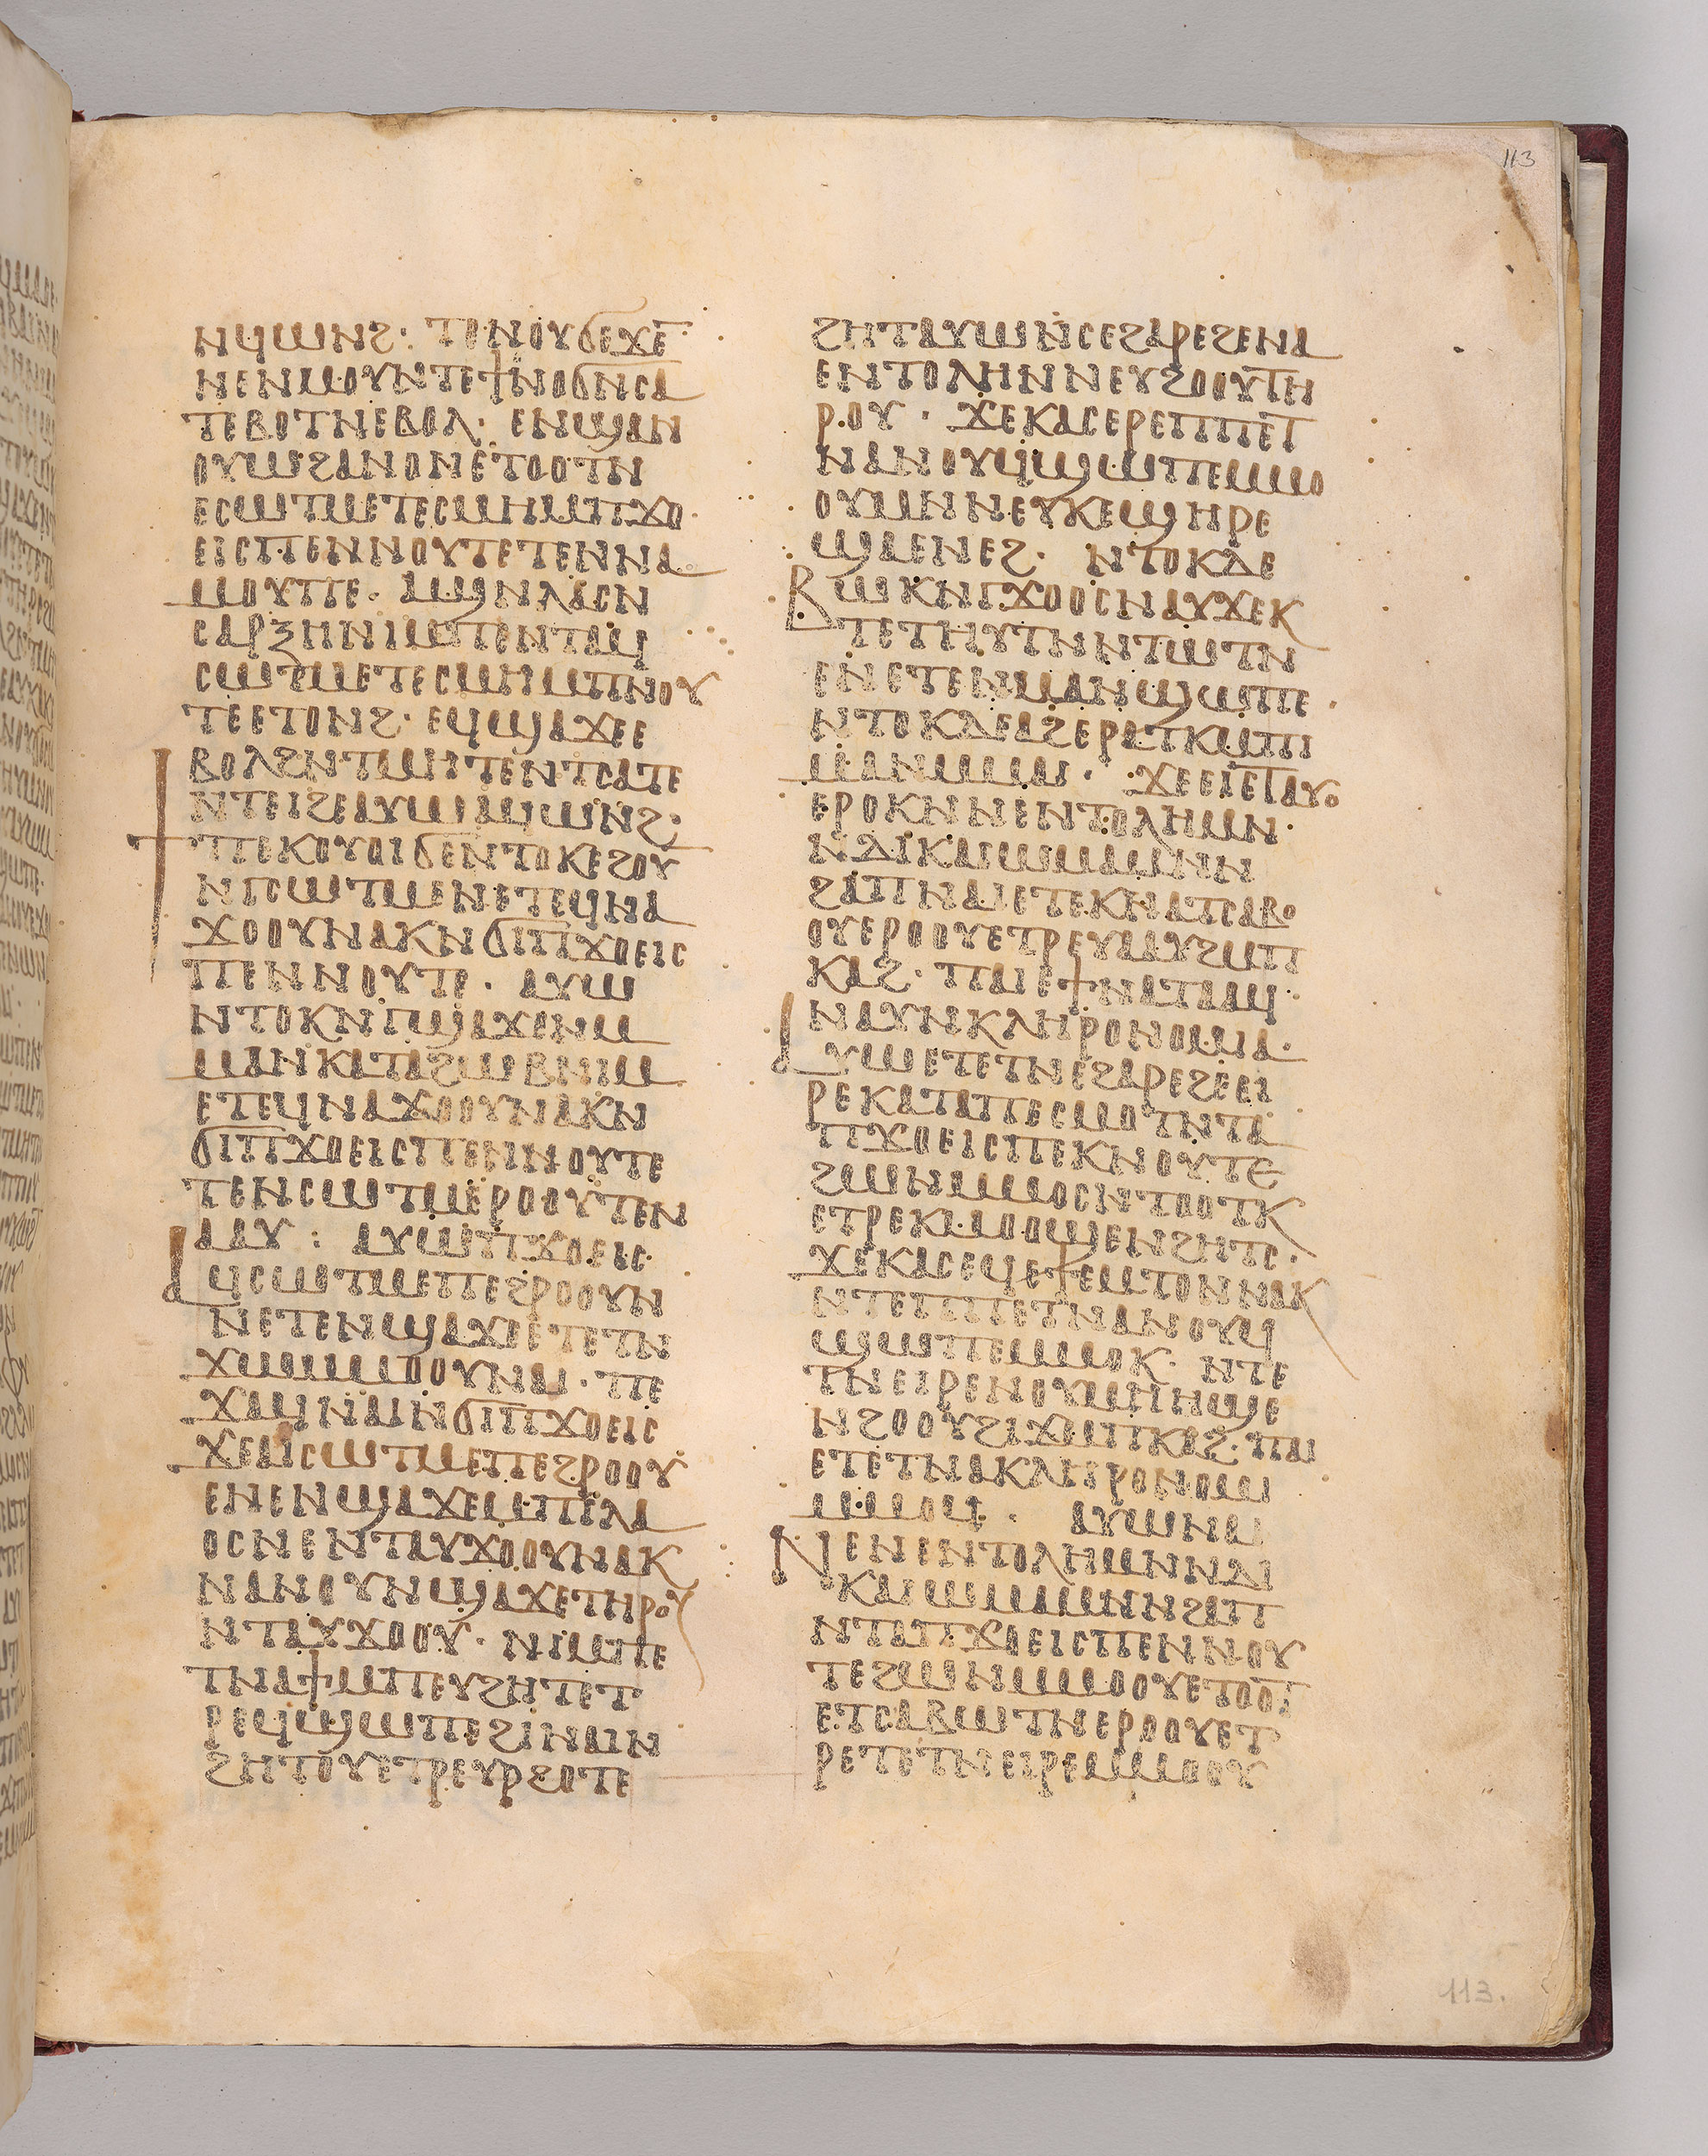 113
ⲛϥⲱⲛϩ· ⲧⲉⲛⲟⲩϭⲉϫⲉ
ⲛⲉⲛⲙⲟⲩⲛⲧⲉϯⲛⲟϭⲛⲥⲁ
ⲧⲉⲃⲟⲧⲛⲉⲃⲟⲗ· ⲉⲛϣⲁⲛ
ⲟⲩⲱϩⲁⲛⲟⲛⲉⲧⲟⲟⲧⲛ
ⲉⲥⲱⲧⲙⲉⲧⲉⲥⲙⲏⲙⲡϫⲟ
ⲉⲓⲥⲡⲉⲛⲛⲟⲩⲧⲉⲧⲉⲛⲛⲁ
ⲙⲟⲩⲡⲉ· ⲁϣⲛⲗⲁⲥⲛ
ⲥⲁⲣⲝⲏⲛⲓⲙⲡⲉⲛⲧⲁϥ
ⲥⲱⲧⲙⲉⲧⲉⲥⲙⲏⲙⲡⲛⲟⲩ
ⲧⲉⲉⲧⲟⲛϩ· ⲉϥϣⲁϫⲉⲉ
ⲃⲟⲗϩⲛⲧⲙⲏⲧⲉⲛⲧⲥⲁⲧⲉ
ⲛⲧⲉⲓϩⲉⲁⲩⲱⲁϥⲱⲛϩ·
ϯⲡⲉⲕⲟⲩⲟⲓϭⲉⲛⲧⲟⲕⲉϩⲟⲩ
ⲛⲅⲥⲱⲧⲙⲉⲛⲉⲧⲉϥⲛⲁ
ϫⲟⲟⲩⲛⲁⲕⲛϭⲓⲡϫⲟⲉⲓⲥ
ⲡⲉⲛⲛⲟⲩⲧⲉ· ⲁⲩⲱ
ⲛⲧⲟⲕⲛⲅϣⲁϫⲉⲛⲙ
ⲙⲁⲛⲕⲁⲧⲁϩⲱⲃⲛⲓⲙ
ⲉⲧⲉϥⲛⲁϫⲟⲟⲩⲛⲁⲕⲛ
ϭⲓⲡϫⲟⲉⲓⲥⲡⲉⲛⲛⲟⲩⲧⲉ
ⲧⲉⲛⲥⲱⲧⲙⲉⲣⲟⲟⲩⲧⲉⲛ
ⲁⲁⲩ: ⲁⲩⲱⲡϫⲟⲉⲓⲥ
ⲁϥⲥⲱⲧⲙⲉⲡⲉϩⲣⲟⲟⲩⲛ
ⲛⲉⲧⲉⲛϣⲁϫⲉⲉⲧⲉⲧⲛ
ϫⲱⲙⲙⲟⲟⲩⲛⲁⲓ· ⲡⲉ
ϫⲁϥⲛⲁⲓⲛϭⲓⲡϫⲟⲉⲓⲥ
ϫⲉⲁⲓⲥⲱⲧⲙⲉⲡⲉϩⲣⲟⲟⲩ
ⲉⲛⲉⲛϣⲁϫⲉⲙⲡⲉⲓⲗⲁ
ⲟⲥⲛⲉⲛⲧⲁⲩϫⲟⲟⲩⲛⲁⲕ
ⲛⲁⲛⲟⲩⲛϣⲁϫⲉⲧⲏⲣⲟⲩ
ⲛⲧⲁⲩϫⲟⲟⲩ· ⲛⲓⲙⲡⲉ
ⲧⲛⲁϯⲙⲡⲉⲩϩⲏⲧⲉⲧ
ⲣⲉϥϣⲱⲡⲉϩⲓⲛⲁⲓⲛ
ϩⲏⲧⲟⲩⲉⲧⲣⲉⲩⲣϩⲟⲧⲉ
ϩⲏⲧⲁⲩⲱⲛⲥⲉϩⲁⲣⲉϩⲉⲛⲁ
ⲉⲛⲧⲟⲗⲏⲛⲛⲉⲩϩⲟⲟⲩⲧⲏ
ⲣⲟⲩ· ϫⲉⲕⲁⲥⲉⲣⲉⲡⲡⲉⲧ
ⲛⲁⲛⲟⲩϥϣⲱⲡⲉⲙⲙⲟ
ⲟⲩⲙⲛⲛⲉⲩⲕⲉϣⲏⲣⲉ
ϣⲁⲉⲛⲉϩ· ⲛⲧⲟⲕⲇⲉ
ⲃⲱⲕⲛⲅϫⲟⲟⲥⲛⲁⲩϫⲉⲕ
ⲧⲉⲧⲏⲩⲧⲛⲛⲧⲱⲧⲛ
ⲉⲛⲉⲧⲉⲛⲙⲁⲛϣⲱⲡⲉ·
ⲛⲧⲟⲕⲇⲉⲁϩⲉⲣⲁⲧⲕⲙⲡⲓ
ⲙⲁⲛⲙⲙⲁⲓ· ϫⲉⲉⲓⲉⲧⲁⲩⲟ
ⲉⲣⲟⲕⲛⲛⲉⲛⲧⲟⲗⲏⲙⲛ
ⲛⲇⲓⲕⲁⲓⲱⲙⲁⲙⲛⲛ
ϩⲁⲡⲛⲁⲓⲉⲧⲉⲕⲛⲁⲧⲥⲁⲃⲟ
ⲟⲩⲉⲣⲟⲟⲩⲉⲧⲣⲉⲩⲁⲁⲩϩⲙⲡ
ⲕⲁϩ· ⲡⲁⲓⲉϯⲛⲁⲧⲁⲁϥ
ⲛⲁⲩⲛⲕⲗⲏⲣⲟⲛⲟⲙⲓⲁ·
ⲁⲩⲱⲉⲧⲉⲧⲛⲉϩⲁⲣⲉϩⲉⲉⲓ
ⲣⲉⲕⲁⲧⲁⲡⲉⲥⲙⲟⲧⲛⲧⲁ
ⲡϫⲟⲉⲓⲥⲡⲉⲕⲛⲟⲩⲧⲉ
ϩⲱⲛⲙⲙⲟⲥⲛⲧⲟⲟⲧⲕ
ⲉⲧⲣⲉⲕⲙⲟⲟϣⲉⲛϩⲏⲧⲥ·
ϫⲉⲕⲁⲥⲉϥⲉϯⲉⲙⲧⲟⲛⲛⲁⲕ
ⲛⲧⲉⲡⲡⲉⲧⲛⲁⲛⲟⲩϥ
ϣⲱⲡⲉⲙⲙⲟⲕ· ⲛⲧⲉ
ⲧⲛⲉⲓⲣⲉⲛⲟⲩⲙⲏⲏϣⲉ
ⲛϩⲟⲟⲩϩⲓϫⲙⲡⲕⲁϩ· ⲡⲁⲓ
ⲉⲧⲉⲧⲛⲁⲕⲗⲏⲣⲟⲛⲟⲙ
ⲙⲙⲟϥ· ⲁⲩⲱⲛⲁⲓ
ⲛⲉⲛⲉⲛⲧⲟⲗⲏⲙⲛⲛⲇⲓ
ⲕⲁⲓⲱⲙⲁⲙⲛⲛϩⲁⲡ
ⲛⲧⲁⲡϫⲟⲉⲓⲥⲡⲉⲛⲛⲟⲩ
ⲧⲉϩⲱⲛⲙⲙⲟⲟⲩⲉⲧⲟⲟⲧ
ⲉⲧⲥⲁⲃⲱⲧⲛⲉⲣⲟⲟⲩⲉⲧ
ⲣⲉⲧⲉⲧⲛⲉⲓⲣⲉⲙⲙⲟⲟⲩ
113.